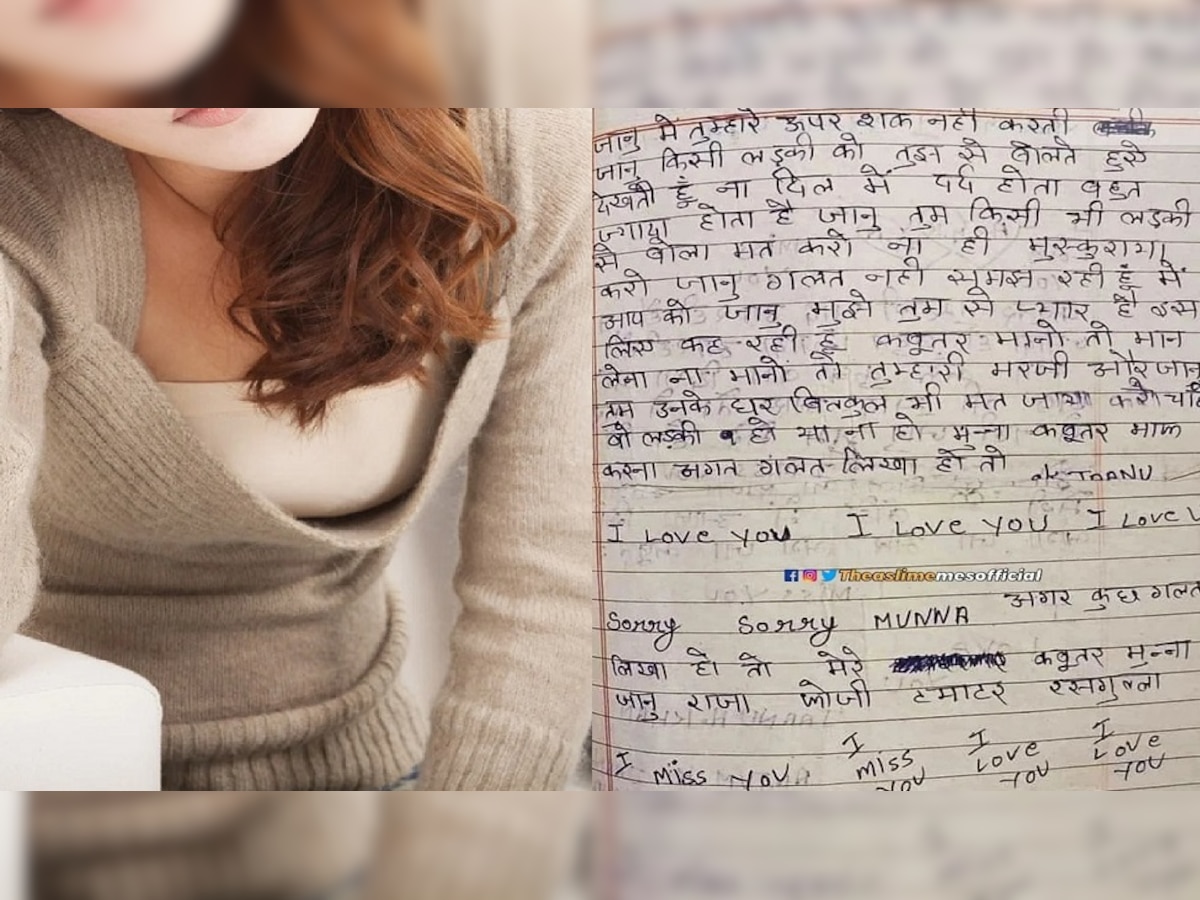 जानु में तुम्हारे ऊपर शक नही करती
जानु किसी लड़की को तुझ से बोलते हुए
देखती हूँ ना दिल में दर्द होता बहुत
ज्यादा होता है जानु तुम किसी भी लड़की
से बोला मत करो ना ही मुस्कुराया
करो जानु गलत नही समझ रही हूँ में
आप को जानु मुझे तुम से प्यार है इस
लिए कह रही हूँ कबूतर मानो तो मान
लेना ना मानो तो तुम्हारी मरजी और जानु
तुम उनके घर बिलकुल भी मत जाया करो चाहे
वो लड़की हो या ना हो मुन्ना कबूतर माफ
करना अगत गलत लिखा हो तो ok JAANU
I Love you I Love you I Love
Theaslimemesofficial
Sorry Sorry MUNNA अगर कुछ गलत
लिखा हो तो मेरे कबूतर मुन्ना
जानु राजा फोजी टमाटर रसगुल्ला
I Miss you I Miss you I Love you I Love you